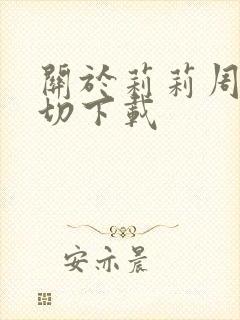 關於莉莉周
切下載
安亦晨